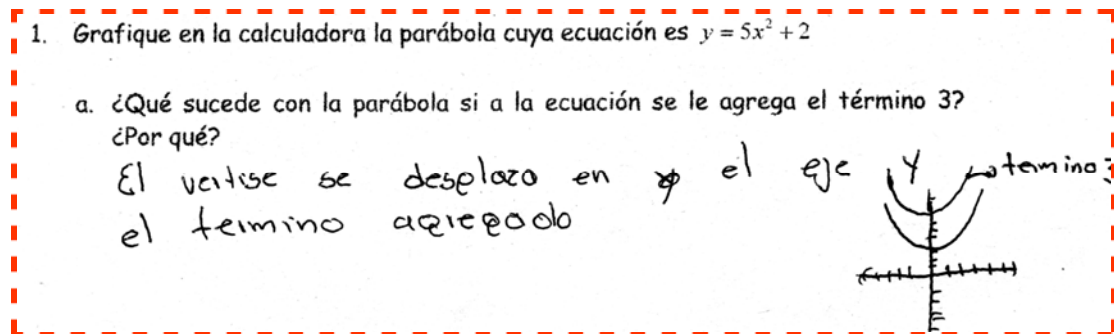 1. Grafique en la calculadora la parábola cuya ecuación es y = 5x² + 2
a. ¿Qué sucede con la parábola si a la ecuación se le agrega el término 3?
¿Por qué?
El vertise se desplazo en el eje Y
el termino agregado
temino 3